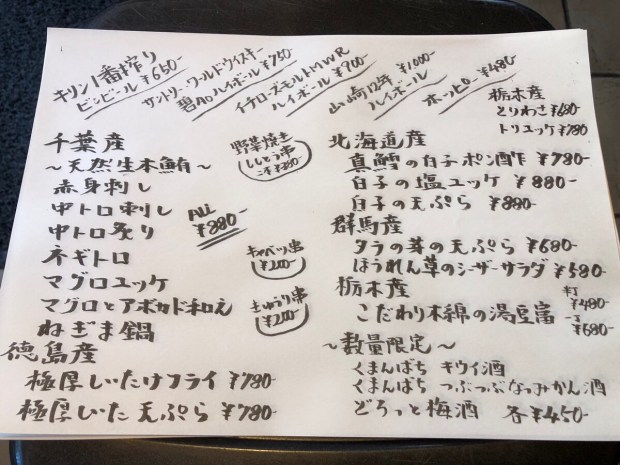 キリン一番搾り
ビンビール ¥650
サントリー・ワールドウイスキー
碧Aoハイボール ¥750
イチローズモルトMWR
ハイボール ¥900
山崎12年 ¥1000-
ハイボール
ホッピー ¥480
栃木産
とりわさ ¥680
トリユッケ ¥780
千葉産
〜天然生本鮪〜
赤身刺し
中トロ刺し
中トロ炙り
ネギトロ
マグロユッケ
マグロとアボカド和え
ねぎま鍋
ALL
¥880-
野菜焼き
ししとう串
キャベツ串
¥200-
きゅうり串
¥200-
徳島産
極厚しいたけフライ ¥780-
極厚しいた天ぷら ¥780-
北海道産
真鱈の白子ポン酢 ¥780-
白子の塩ユッケ ¥880-
白子の天ぷら ¥880-
群馬産
タラの芽の天ぷら ¥680-
ほうれん草のシーザーサラダ ¥580-
栃木産
こだわり木綿の湯豆富
¥480-
一丁
¥680-
〜数量限定〜
くまんばち キウイ酒
くまんばち つぶつぶなつみかん酒
どろっと梅酒 各¥450-